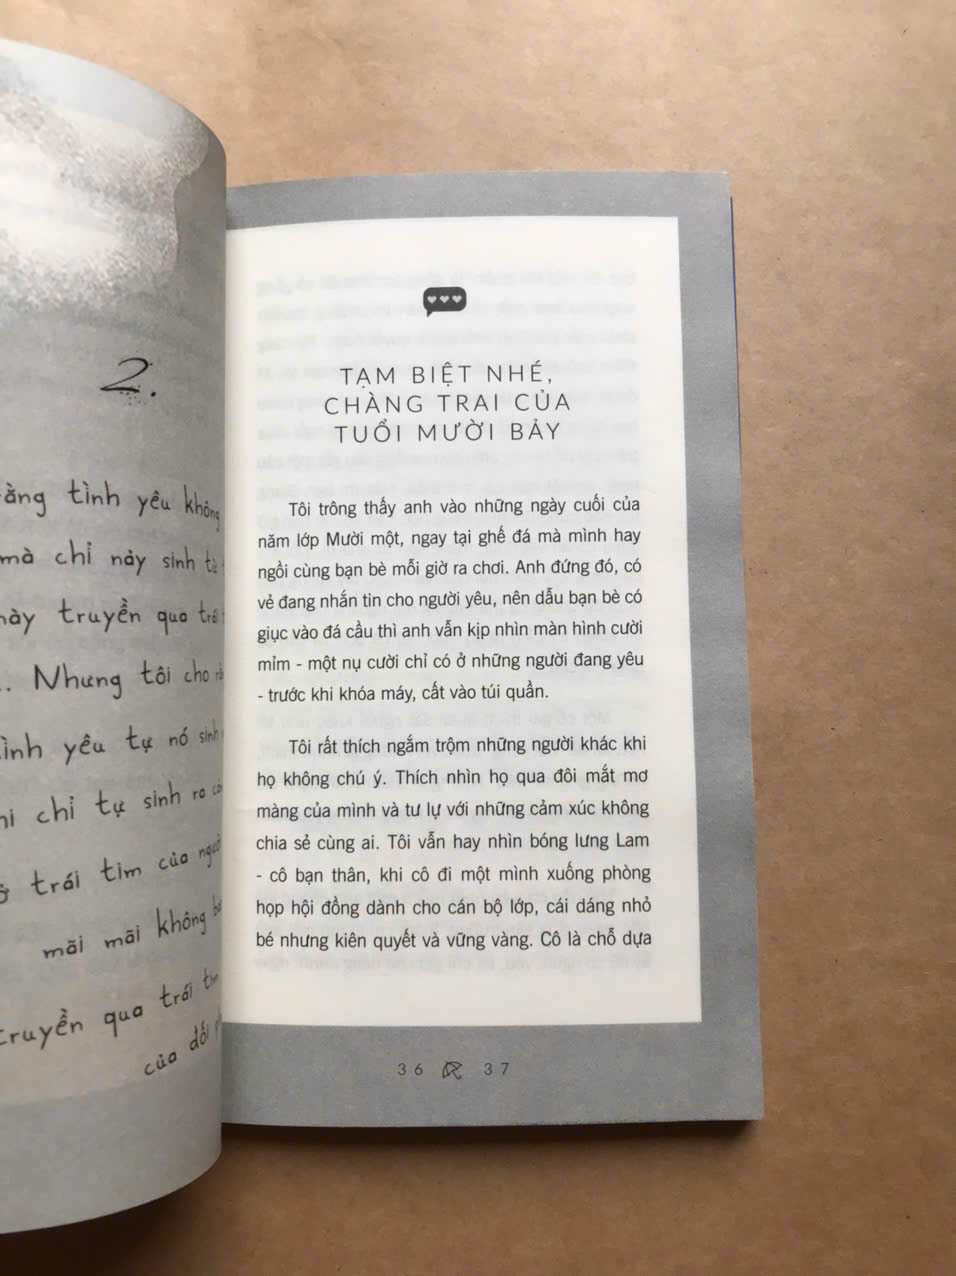 2.
ằng tình yêu không
mà chỉ nảy sinh từ
này truyền qua trái
.. Nhưng tôi cho
tình yêu tự nó sinh
chỉ tự sinh ra
ở trái tim của người
mãi mãi không
truyền qua trái tim
của đối
TẠM BIỆT NHÉ,
CHÀNG TRAI CỦA
TUỔI MƯỜI BẢY
Tôi trông thấy anh vào những ngày cuối của
năm lớp Mười một, ngay tại ghế đá mà mình hay
ngồi cùng bạn bè mỗi giờ ra chơi. Anh đứng đó, có
vẻ đang nhắn tin cho người yêu, nên dẫu bạn bè có
giục vào đá cầu thì anh vẫn kịp nhìn màn hình cười
mỉm - một nụ cười chỉ có ở những người đang yêu
- trước khi khóa máy, cất vào túi quần.
Tôi rất thích ngắm trộm những người khác khi
họ không chú ý. Thích nhìn họ qua đôi mắt mơ
màng của mình và tư lự với những cảm xúc không
chia sẻ cùng ai. Tôi vẫn hay nhìn bóng lưng Lam
- cô bạn thân, khi cô đi một mình xuống phòng
họp hội đồng dành cho cán bộ lớp, cái dáng nhỏ
bé nhưng kiên quyết và vững vàng. Cô là chỗ dựa
36 37